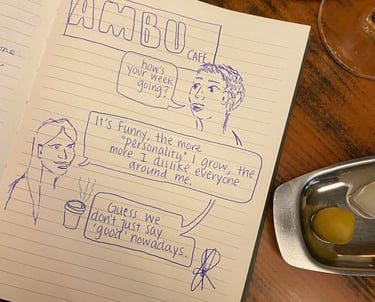 AMBU CAFE
how's
your week
going?
It's funny. the more
"personality" I grow, the
more I dislike everyone
around me.
Guess we
don't just say
'good' nowadays.